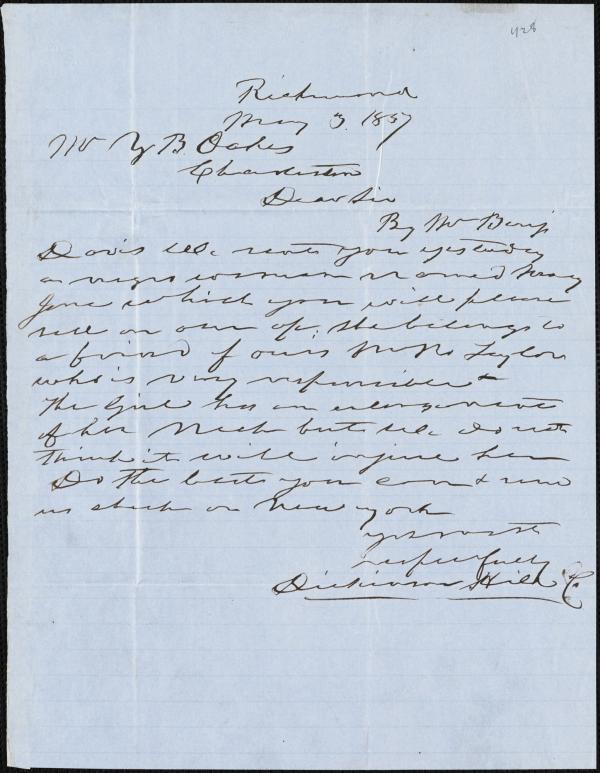 428
Richmond
May 3. 1857
Mr Z B. Oakes
Charleston
Dear Sir
By Mr Benj
Davis we sent you yesterday
a negro woman named Mary
Jane which you will please
sell on our a/c, she belongs to
a friend of ours Mr Taylor
who is very responsible &
The Girl has an enlargement
of her Neck but we do not
think it will injure her
Do the best you can & send
us check on New york
yrs most
respectfully
Dickinson Hill & C